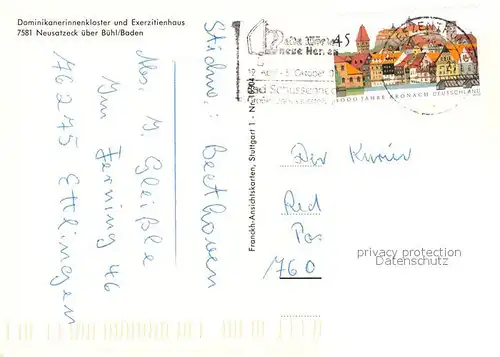 Dominikanerinnenkloster und Exerzitienhaus
7581 Neusatzeck über Bühl/Baden
Stichw.: Beethoven
Abs. J. Gleißle
Im Ferning 46
76275 Ettlingen
Franckh-Ansichtskarten, Stuttgart 1 - Nr.
neue Herzen
Oktober
Bad Schussenried
45
1000 JAHRE KRONACH DEUTSCHLAND
Der Kurier
Red
Pos
760
privacy protection
Datenschutz